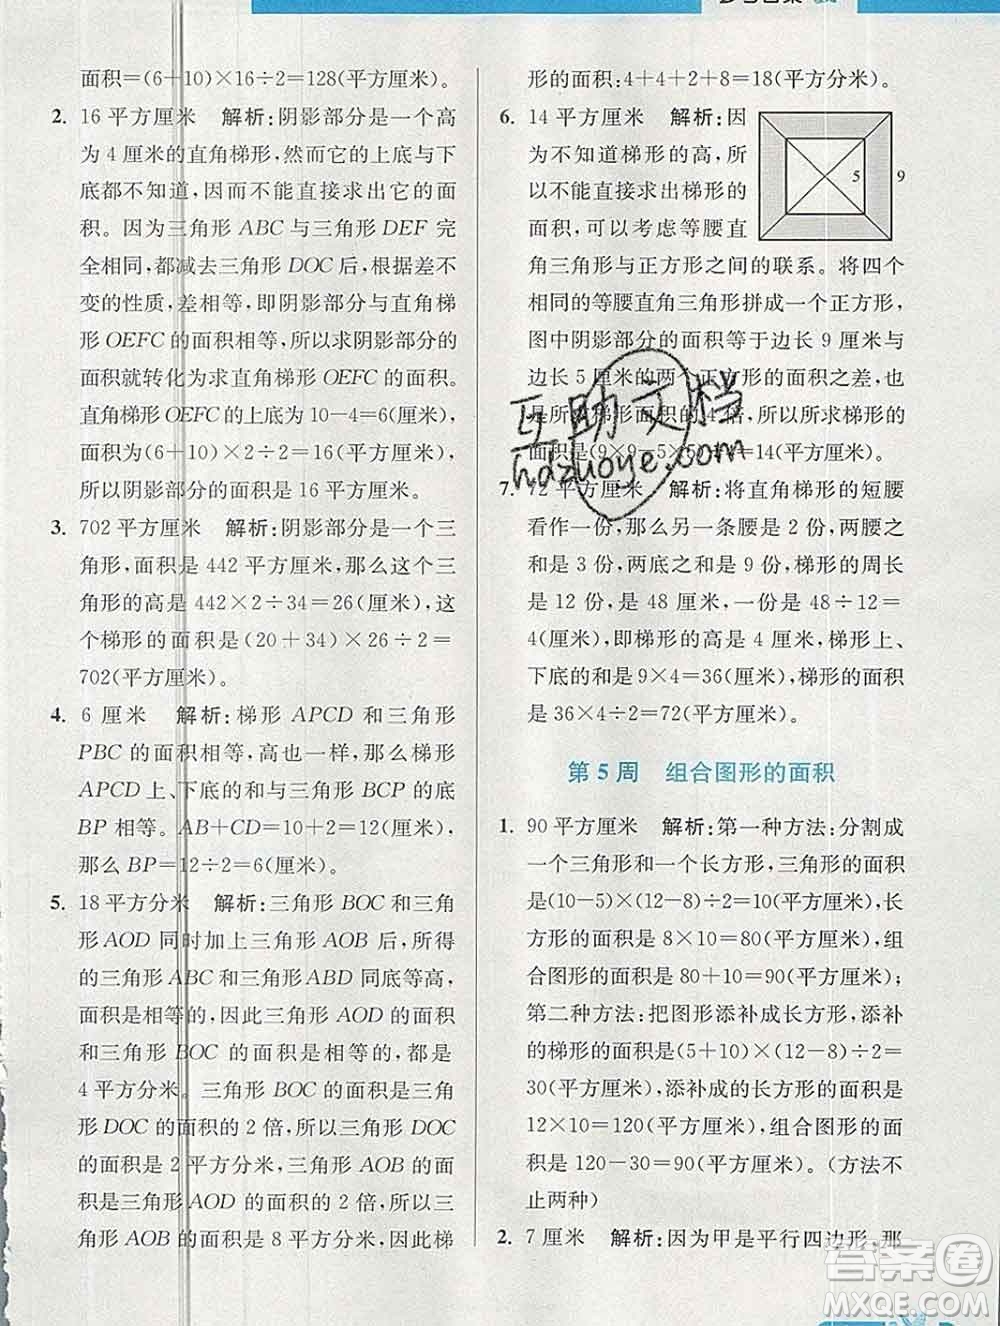 参考答案
面积=(6+10)×16÷2=128(平方厘米)。
2. 16 平方厘米 解析:阴影部分是一个高
为 4 厘米的直角梯形,而它的上底与下
底都不知道,因而不能直接求出它的面
积。因为三角形 ABC 与三角形 DEF 完
全相同,都减去三角形 DOC 后,根据差不
变的性质,差相等,即阴影部分与直角梯
形 OEFC 的面积相等,所以求阴影部分的
面积就转化为求直角梯形 OEFC 的面积。
直角梯形 OEFC 的上底为 10-4=6(厘米),
面积为(6+10)×2÷2=16(平方厘米),
所以阴影部分的面积是 16 平方厘米。
3. 702 平方厘米 解析:阴影部分是一个三
角形,面积是 442 平方厘米,那么这个三
角形的高是 442×2÷34=26(厘米),这
个梯形的面积是(20+34)×26÷2=
702(平方厘米)。
4. 6 厘米 解析:梯形 APCD 和三角形
PBC 的面积相等,高也一样,那么梯形
APCD 上、下底的和与三角形 BCP 的底
BP 相等。AB+CD=10+2=12(厘米),
那么 BP=12÷2=6(厘米)。
5. 18 平方分米 解析:三角形 BOC 和三角
形 AOD 同时加上三角形 AOB 后,所得
的三角形 ABC 和三角形 ABD 同底等高,
面积是相等的,因此三角形 AOD 的面积
和三角形 BOC 的面积相等,都是
4 平方分米。三角形 BOC 的面积是三角形
DOC 的面积的 2 倍,所以三角形 DOC
的面积是 2 平方分米,三角形 AOB 的面
积是三角形 AOD 的面积的 2 倍,所以三
角形 AOB 的面积是 8 平方分米,因此梯
形的面积:4+4+2+8=18(平方分米)。
6. 14 平方厘米 解析:因
为不知道梯形的高,所
以不能直接求出梯形的
面积,可以考虑等腰直
角三角形与正方形之间的联系。将四个
相同的等腰直角三角形拼成一个正方形,
图中阴影部分的面积等于边长 9 厘米与
边长 5 厘米的两个正方形的面积之差,也
是所求梯形面积的 4 倍,所以所求梯形的
面积是(9×9-5×5)÷4=14(平方厘米)。
5
9
7. 72 平方厘米 解析:将直角梯形的短腰
看作一份,那么另一条腰是 2 份,两腰之
和是 3 份,两底之和是 9 份,梯形的周长
是 12 份,是 48 厘米,一份是 48÷12=
4(厘米),即梯形的高是 4 厘米,梯形上、
下底的和是 9×4=36(厘米),梯形的面积
是 36×4÷2=72(平方厘米)。
第 5 周 组合图形的面积
1. 90 平方厘米 解析:第一种方法:分割成
一个三角形和一个长方形,三角形的面积
是(10-5)×(12-8)÷2=10(平方厘米),长
方形的面积是 8×10=80(平方厘米),组
合图形的面积是 80+10=90(平方厘米);
第二种方法:把图形添补成长方形,添补
的梯形的面积是(5+10)×(12-8)÷2=
30(平方厘米),添补成的长方形的面积是
12×10=120(平方厘米),组合图形的面
积是 120-30=90(平方厘米)。(方法不
止两种)
2. 7 厘米 解析:因为甲是平行四边形,那
互助文档
hdzuoye.com
答案圈
MXQE.COM